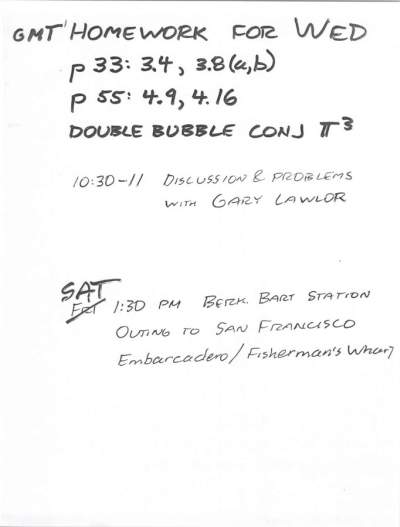 GMT HOMEWORK FOR WED
p 33: 3.4, 3.8(a,b)
p 55: 4.9, 4.16
DOUBLE BUBBLE CONJ π³
10:30-11 DISCUSSION & PROBLEMS
WITH GARY LAWLOR
SAT
FRI 1:30 PM BERK. BART STATION
OUTING TO SAN FRANCISCO
Embarcadero/Fisherman's Wharf